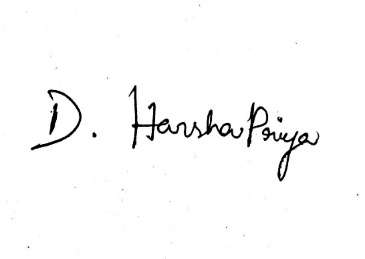 D. HarshaPriya